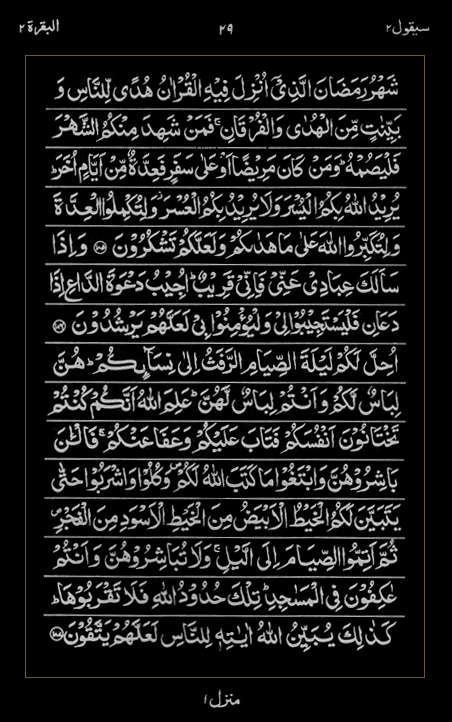 سيقول ٢
٢٩
البقرة ٢
شَهْرُ رَمَضَانَ الَّذِیْۤ اُنْزِلَ فِیْهِ الْقُرْاٰنُ هُدًی لِّلنَّاسِ وَ
بَیِّنٰتٍ مِّنَ الْهُدٰی وَالْفُرْقَانِ ۚ فَمَنْ شَهِدَ مِنْكُمُ الشَّهْرَ
فَلْیَصُمْهُ ؕ وَمَنْ كَانَ مَرِیْضًا اَوْ عَلٰی سَفَرٍ فَعِدَّةٌ مِّنْ اَیَّامٍ اُخَرَ ؕ
یُرِیْدُ اللّٰهُ بِكُمُ الْیُسْرَ وَلَا یُرِیْدُ بِكُمُ الْعُسْرَ ؗ وَلِتُكْمِلُوا الْعِدَّةَ
وَلِتُكَبِّرُوا اللّٰهَ عَلٰی مَا هَدٰىكُمْ وَلَعَلَّكُمْ تَشْكُرُوْنَ ﴿۱۸۵﴾ وَاِذَا
سَاَلَكَ عِبَادِیْ عَنِّیْ فَاِنِّیْ قَرِیْبٌ ؕ اُجِیْبُ دَعْوَةَ الدَّاعِ اِذَا
دَعَانِ فَلْیَسْتَجِیْبُوْا لِیْ وَلْیُؤْمِنُوْا بِیْ لَعَلَّهُمْ یَرْشُدُوْنَ ﴿۱۸۶﴾
اُحِلَّ لَكُمْ لَیْلَةَ الصِّیَامِ الرَّفَثُ اِلٰی نِسَآىِٕكُمْ ؕ هُنَّ
لِبَاسٌ لَّكُمْ وَاَنْتُمْ لِبَاسٌ لَّهُنَّ ؕ عَلِمَ اللّٰهُ اَنَّكُمْ كُنْتُمْ
تَخْتَانُوْنَ اَنْفُسَكُمْ فَتَابَ عَلَیْكُمْ وَعَفَا عَنْكُمْ ۚ فَالْـٰٔنَ
بَاشِرُوْهُنَّ وَابْتَغُوْا مَا كَتَبَ اللّٰهُ لَكُمْ ۪ وَكُلُوْا وَاشْرَبُوْا حَتّٰی
یَتَبَیَّنَ لَكُمُ الْخَیْطُ الْاَبْیَضُ مِنَ الْخَیْطِ الْاَسْوَدِ مِنَ الْفَجْرِ ۪
ثُمَّ اَتِمُّوا الصِّیَامَ اِلَی الَّیْلِ ۚ وَلَا تُبَاشِرُوْهُنَّ وَاَنْتُمْ
عٰكِفُوْنَ فِی الْمَسٰجِدِ ؕ تِلْكَ حُدُوْدُ اللّٰهِ فَلَا تَقْرَبُوْهَا ؕ
كَذٰلِكَ یُبَیِّنُ اللّٰهُ اٰیٰتِهٖ لِلنَّاسِ لَعَلَّهُمْ یَتَّقُوْنَ ﴿۱۸۷﴾
منزل ١